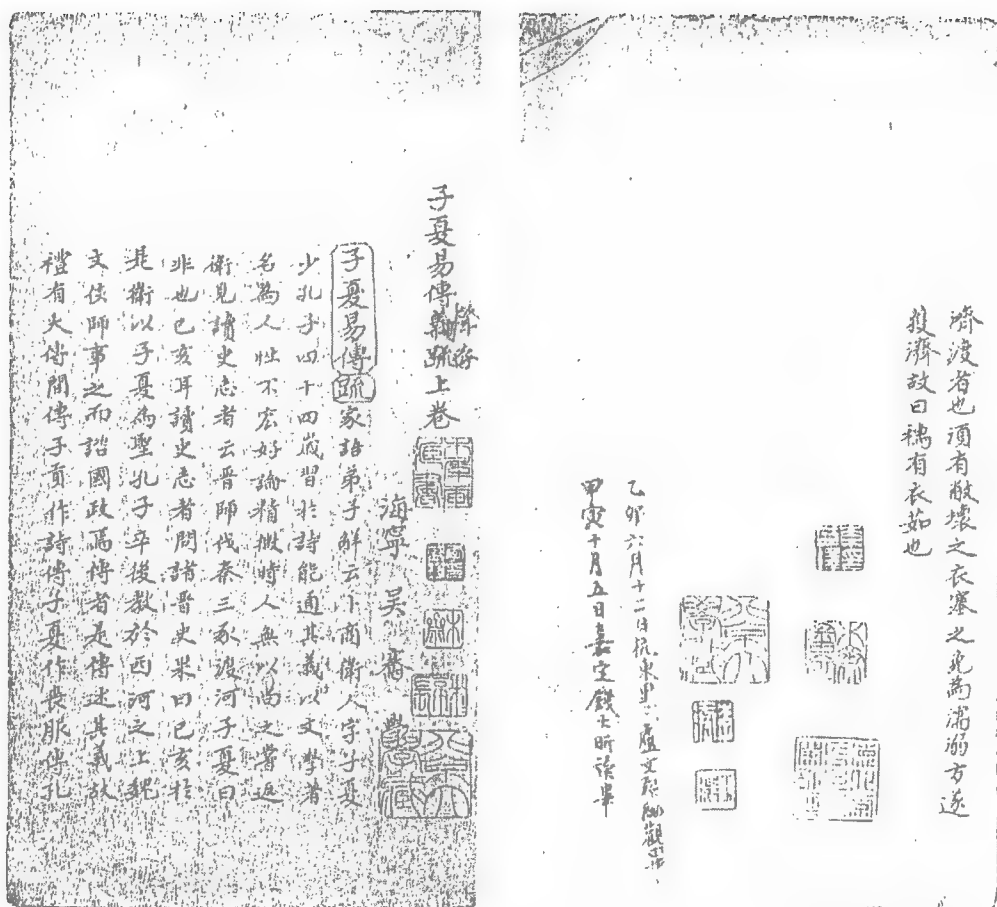 濟渡者也須有敝壞之衣塞之免為濡溺方遂
獲濟故曰繻有衣茹也
乙卯六月十二日杭東里人盧文弨細觀
甲寅十月五日嘉定錢大昕讀畢
子夏易傳義疏上卷
海寧 吳騫 學
子夏易傳疏家語弟子解云卜商衛人字子夏
少孔子四十四歲習於詩能通其義以文學著
名為人性不宏好論精微時人無以尚之嘗返
衛見讀史志者云晉師伐秦三豕渡河子夏曰
非也己亥耳讀史志者問諸晉史果曰己亥於
是衛以子夏為聖孔子卒後教於西河之上魏
文侯師事之而諮國政焉傳者是傳述其義故
禮有大傳間傳子貢作詩傳子夏作喪服傳孔